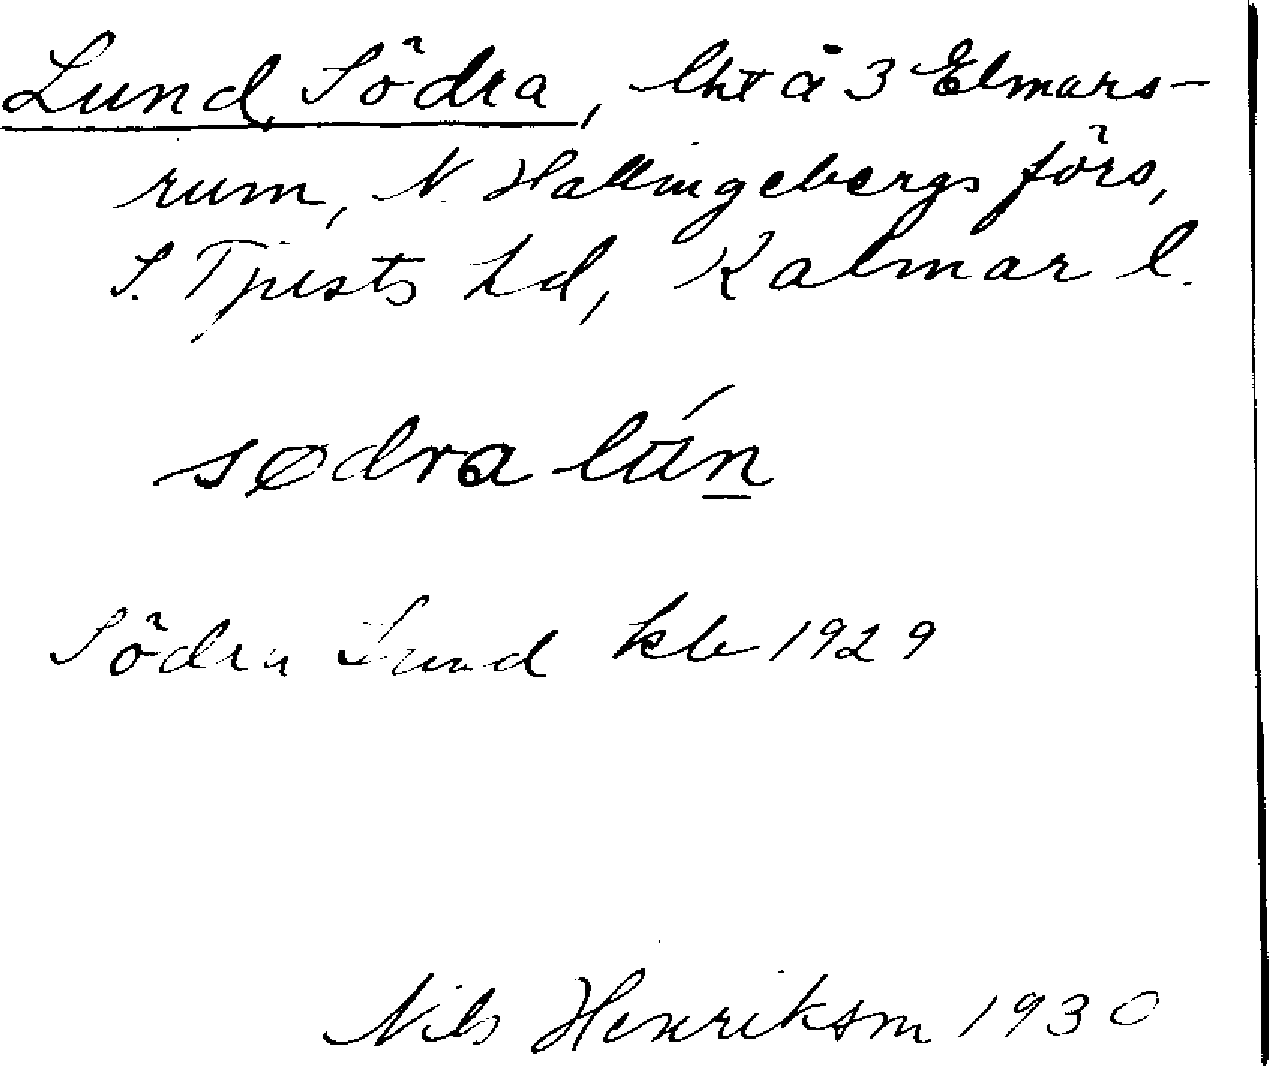 Lund, Södra, lht å 3 Elmars-
rum, N. Hallingebergs förs,
S. Tjusts hd, Kalmar l.
södra lún
Södra Lund kb 1929
Nils Henrikson 1930